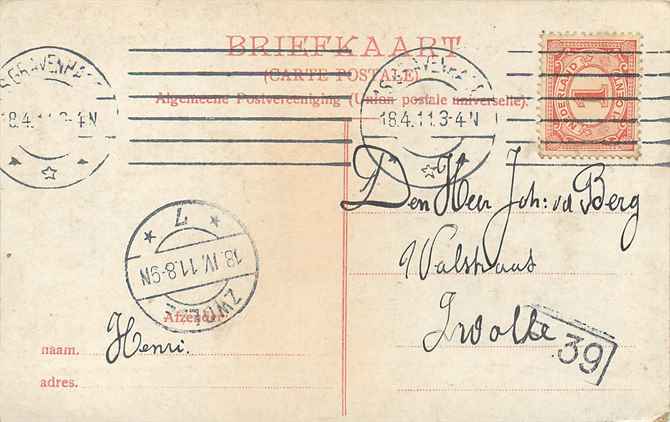 BRIEFKAART
(CARTE POSTALE)
Algemeene Postvereeniging (Union postale universelle).
'SGRAVENHAGE
18.4.11.3-4N
'SGRAVENHAGE
18.4.11.3-4N
NEDERLAND
1
CENT
Den Heer Joh: vd Berg
Walstraat
Zwolle
39
7
18.IV.11.8-9N
ZWOLLE
Afzender
naam. Henri.
adres.